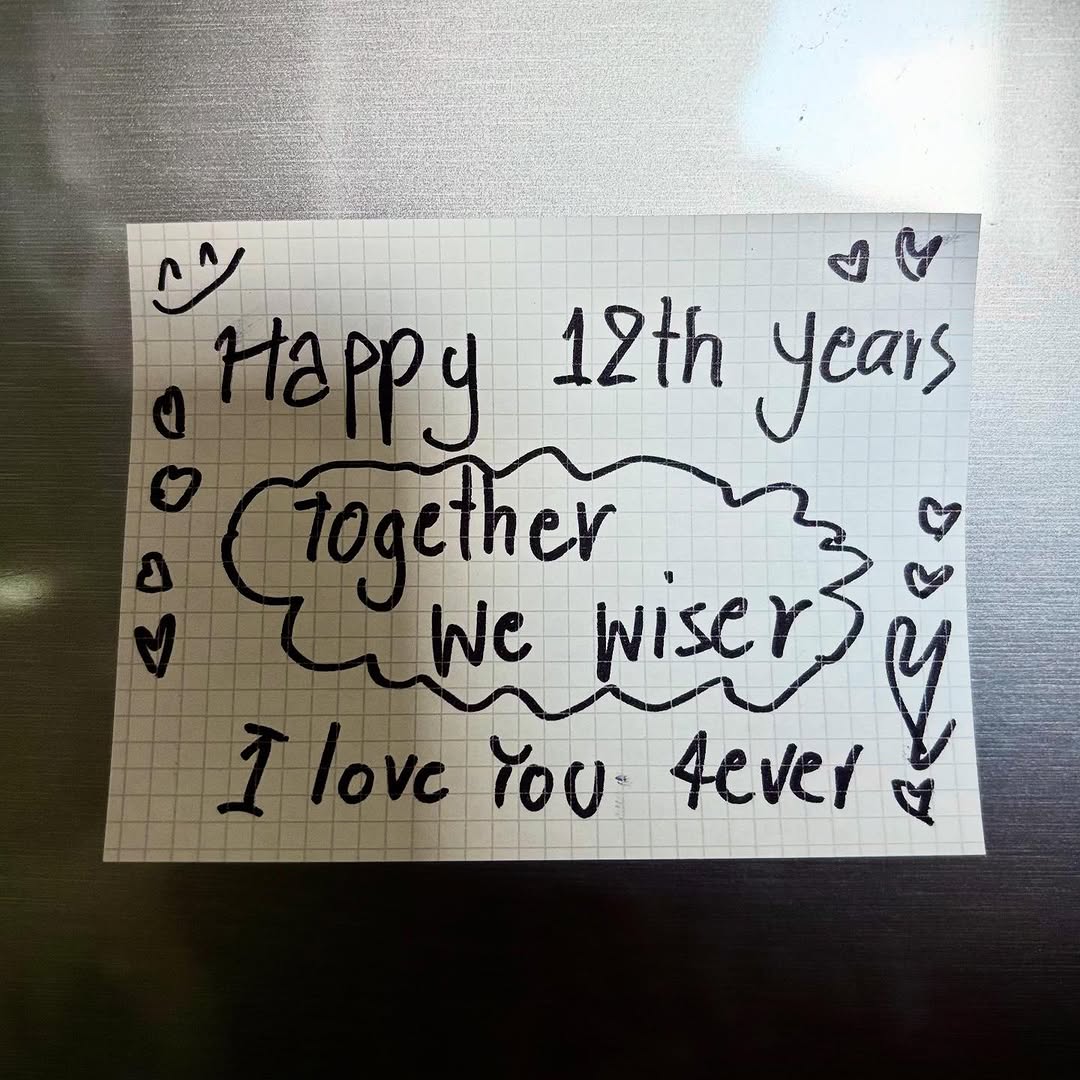 Happy 12th years
together
we wiser
I love You 4ever